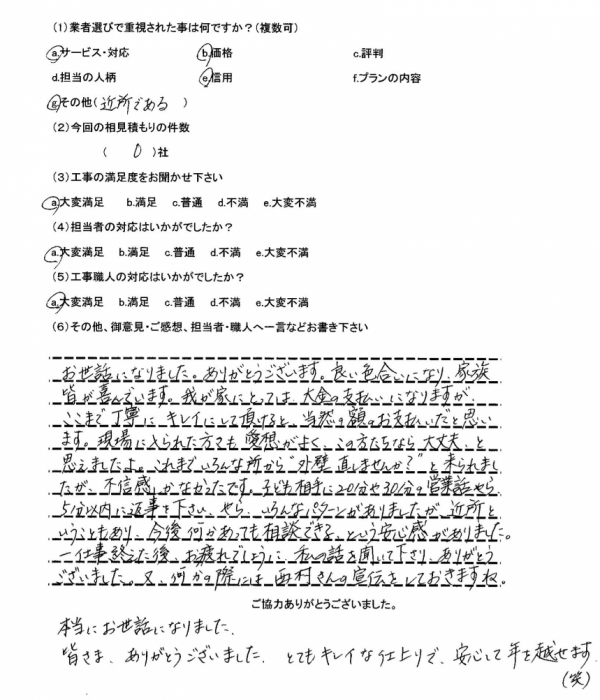 (1)業者選びで重視された事は何ですか?(複数可)
a.サービス・対応 b.価格 c.評判
d.担当の人柄 e.信用 f.プランの内容
g.その他(近所である)
(2)今回の相見積もりの件数
( 0 )社
(3)工事の満足度をお聞かせ下さい
a.大変満足 b.満足 c.普通 d.不満 e.大変不満
(4)担当者の対応はいかがでしたか?
a.大変満足 b.満足 c.普通 d.不満 e.大変不満
(5)工事職人の対応はいかがでしたか?
a.大変満足 b.満足 c.普通 d.不満 e.大変不満
(6)その他、御意見・ご感想、担当者・職人へ一言などお書き下さい
お世話になりました。ありがとうございます。良い色合いになり、家族
皆が喜んでいます。我が家にとっては、大金の支払いになりますが、
ここまで丁寧に キレイにして頂けると、当然の額のお支払いだと思い
ます。現場に入られた方ても 愛想がよく、この方たちなら大丈夫、と
思えましたよ。これまでいろんな所から“外壁直しませんか?”と来られまし
たが、不信感しかなかったです。子ども相手に20分や30分の営業話やら、
5分以内に返事を下さい、やら、いろんなパターンがありましたが、近所と
いうこともあり、今後何かあっても相談できる、という安心感がありました。
一仕事終えた後、お疲れでしょうに、私の話を聞いて下さり、ありがとう
ございました。又、何かの際には西村さんの宣伝をしておきますね。
ご協力ありがとうございました。
本当にお世話になりました。
皆さま、ありがとうございました。とてもキレイな仕上りで、安心して年を越せます
(笑)